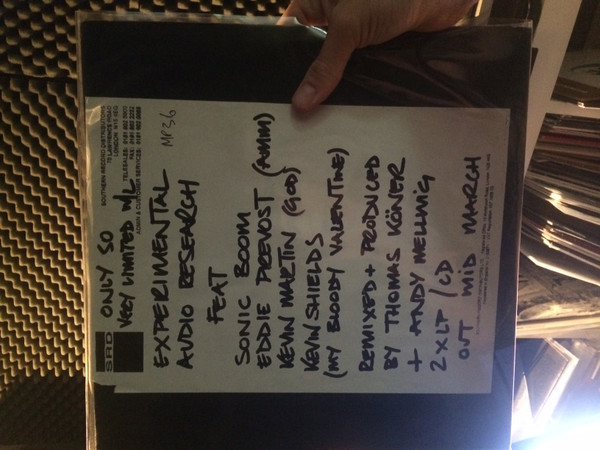 SRD
SOUTHERN RECORD DISTRIBUTORS
ONLY SO
VERY LIMITED W/L
MP36
EXPERIMENTAL
AUDIO RESEARCH
FEAT
SONIC BOOM
EDDIE PREVOST (AMM)
KEVIN MARTIN (GOD)
KEVIN SHIELDS
(MY BLOODY VALENTINE)
REMIXED + PRODUCED
BY THOMAS KÖNER
+ ANDY MELLWIG
2 X LP / CD
OUT MID MARCH